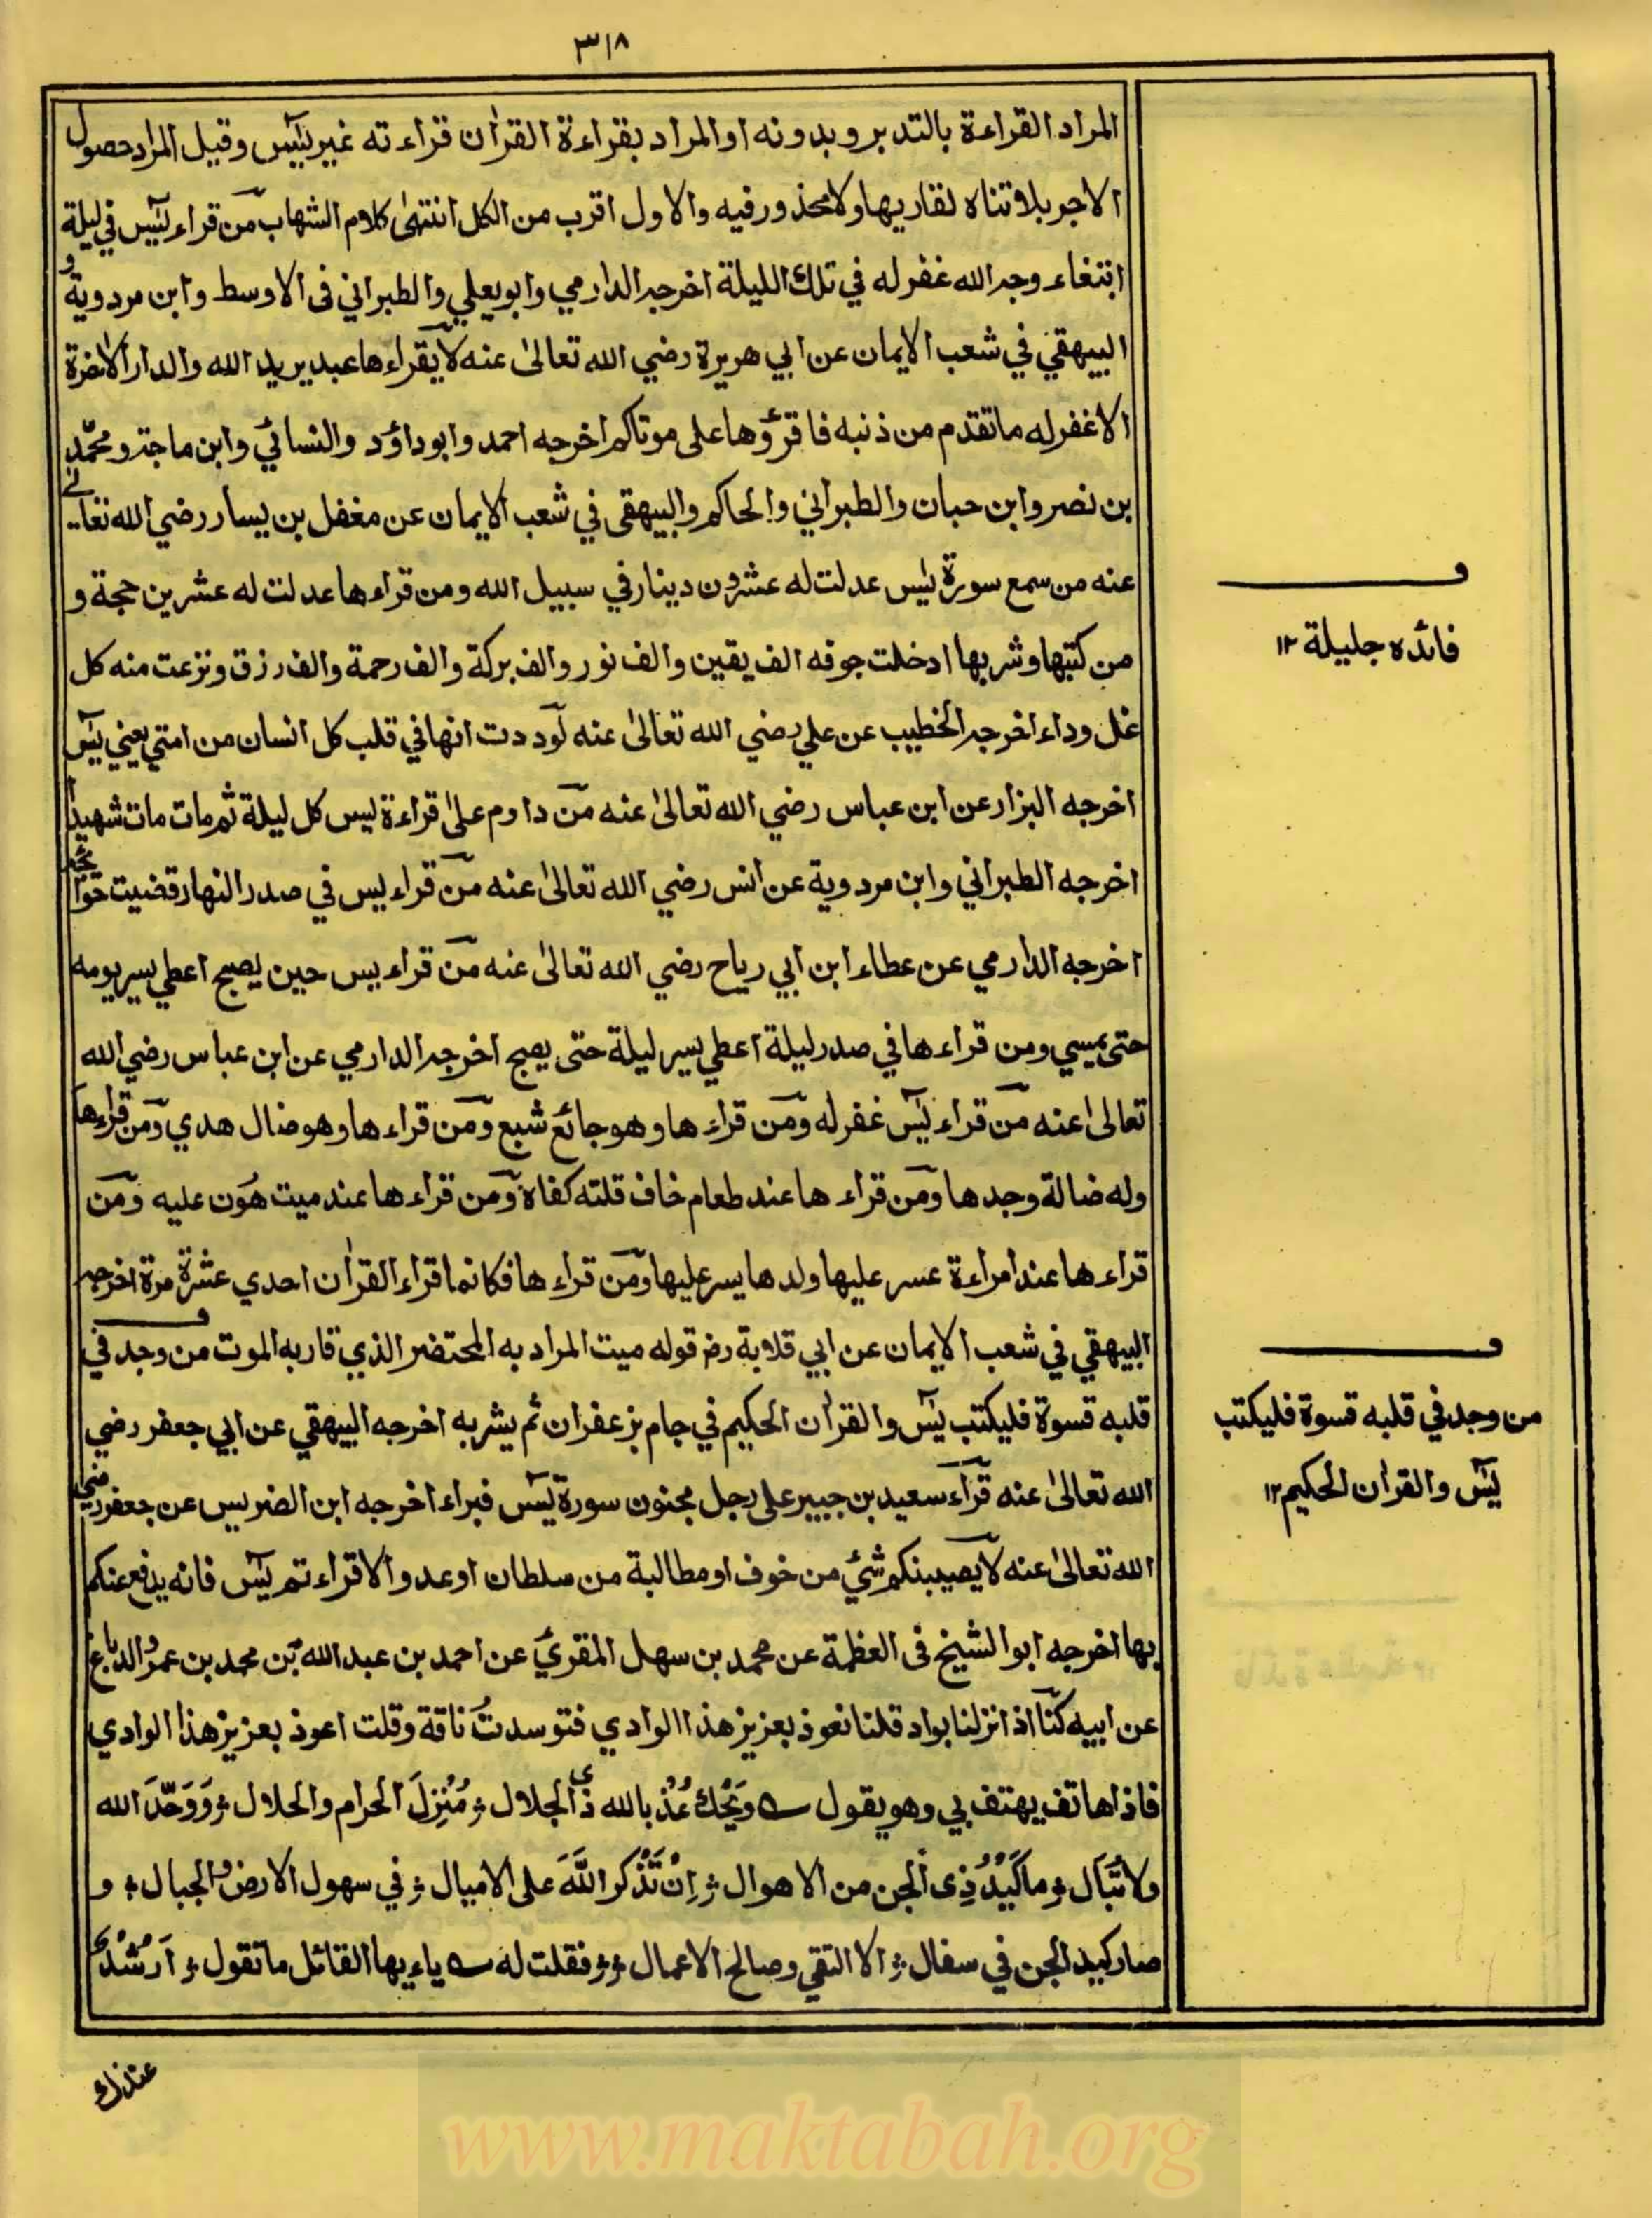 ٣١٨
المراد القراءة بالتدبر وبدونه او المراد بقراءة القرٰان قراءته غير يٰسٓ وقيل المراد حصول
الاجر بلا تناه لقاريها ولا محذور فيه والاول اقرب من الكل انتهىٰ كلام الشهاب من قراء يٰسٓ في ليلة
ابتغاء وجه الله غفر له في تلك الليلة اخرجه الدارمي وابو يعلي والطبراني فى الاوسط وابن مردوية و
البيهقي في شعب الايمان عن ابي هريرة رضي الله تعالىٰ عنه لا يقراءها عبد يريد الله والدار الاٰخرة
الا غفر له ما تقدم من ذنبه فاقرؤها على موتاكم اخرجه احمد وابوداؤد والنسائي وابن ماجة ومحمّد
بن نصر وابن حبان والطبراني والحاكم والبيهقى في شعب الايمان عن مغفل بن يسار رضي الله تعالے
عنه من سمع سورة يٰس عدلت له عشرون دينار في سبيل الله ومن قراءها عدلت له عشرين حجة و
من كتبها وشربها ادخلت جوفه الف يقين والف نور والف بركة والف رحمة والف رزق ونزعت منه كل
غل وداء اخرجه الخطيب عن علي رضي الله تعالىٰ عنه لوددت انها في قلب كل انسان من امتي يعني يٰسٓ
اخرجه البزار عن ابن عباس رضي الله تعالىٰ عنه من داوم علىٰ قراءة يس كل ليلة ثم مات مات شهيدا
اخرجه الطبراني وابن مردوية عن انس رضي الله تعالىٰ عنه من قراء يس في صدر النهار قضيت حوائجه
اخرجه الدارمي عن عطاء ابن ابي رياح رضي الله تعالىٰ عنه من قراء يس حين يصبح اعطي يسر يومه
حتى يمسي ومن قراءها في صدر ليلة اعطي يسر ليلة حتى يصبح اخرجه الدارمي عن ابن عباس رضي الله
تعالىٰ عنه من قراء يٰسٓ غفر له ومن قراءها وهو جائع شبع ومن قراءها وهو ضال هدي ومن قراءها
وله ضالة وجدها ومن قراءها عند طعام خاف قلته كفاه ومن قراءها عند ميت هون عليه ومن
قراءها عند امراءة عسر عليها ولدها يسر عليها ومن قراءها فكانما قراء القرٰان احدي عشرة مرة اخرجه
البيهقي في شعب الايمان عن ابي قلابة رض قوله ميت المراد به المحتضر الذي قاربه الموت من وجد في
قلبه قسوة فليكتب يٰسٓ والقرٰان الحكيم في جام بزعفران ثم يشربه اخرجه البيهقي عن ابي جعفر رضي
الله تعالىٰ عنه قراء سعيد بن جبير على رجل مجنون سورة يٰسٓ فبراء اخرجه ابن الضريس عن جعفر رضي
الله تعالىٰ عنه لا يصيبنكم شئ من خوف او مطالبة من سلطان او عدو الا قراءتم يٰسٓ فانه يدفع عنكم
بها اخرجه ابو الشيخ فى العظمة عن محمد بن سهل المقري عن احمد بن عبد الله بن محمد بن عمرو الدباغ
عن ابيه كنا اذا نزلنا بواد قلنا نعوذ بعزيز هذا الوادي فتوسدت ناقة وقلت اعوذ بعزيز هذا الوادي
فاذا هاتف يهتف بي وهو يقول ويحك عُذ بالله ذى الجلال مُنزِلَ الحرام والحلال ووحّد الله
ولا تُبَال ما كَيْدُ ذِى الجن من الاهوال اِنْ تَذْكر اللَّهَ على الاميال في سهول الارض والجبال و
صار كيد الجن في سفال الا التقي وصالح الاعمال فقلت له ياءيها القائل ما تقول اَرُشْدٌ
عندك
فائده جليلة ١٢
من وجد في قلبه قسوة فليكتب
يٰسٓ والقرٰان الحكيم ١٢
www.maktabah.org